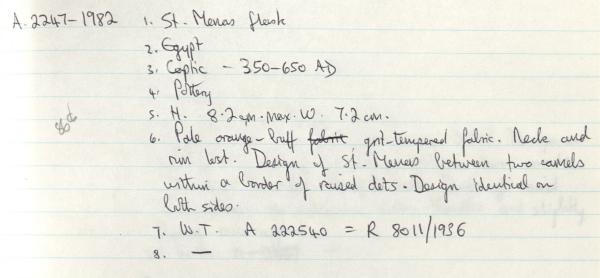 A. 2247-1982 1. St. Menas flask
2. Egypt
3. Coptic - 350-650 AD
4. Pottery
5. H. 8.2 cm. Max. W. 7.2 cm.
6. Pale orange-buff fabric grit-tempered fabric. Neck and
rim lost. Design of St. Menas between two camels
within a border of raised dots. Design identical on
both sides.
7. W.T. A 222540 = R 8011/1936
8. —